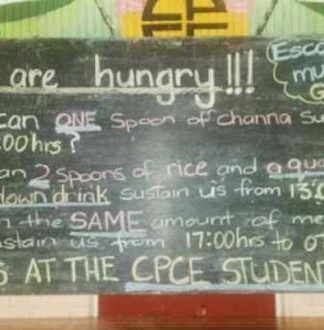 are hungry!!!
Esca
mu
G
can ONE Spoon of channa Su
:00hrs?
an 2 spoons of rice and a qua
down drink sustain us from 13:0
n the SAME amount of me
ustain us from 17:00hrs to 0
S AT THE CPCE STUDENT